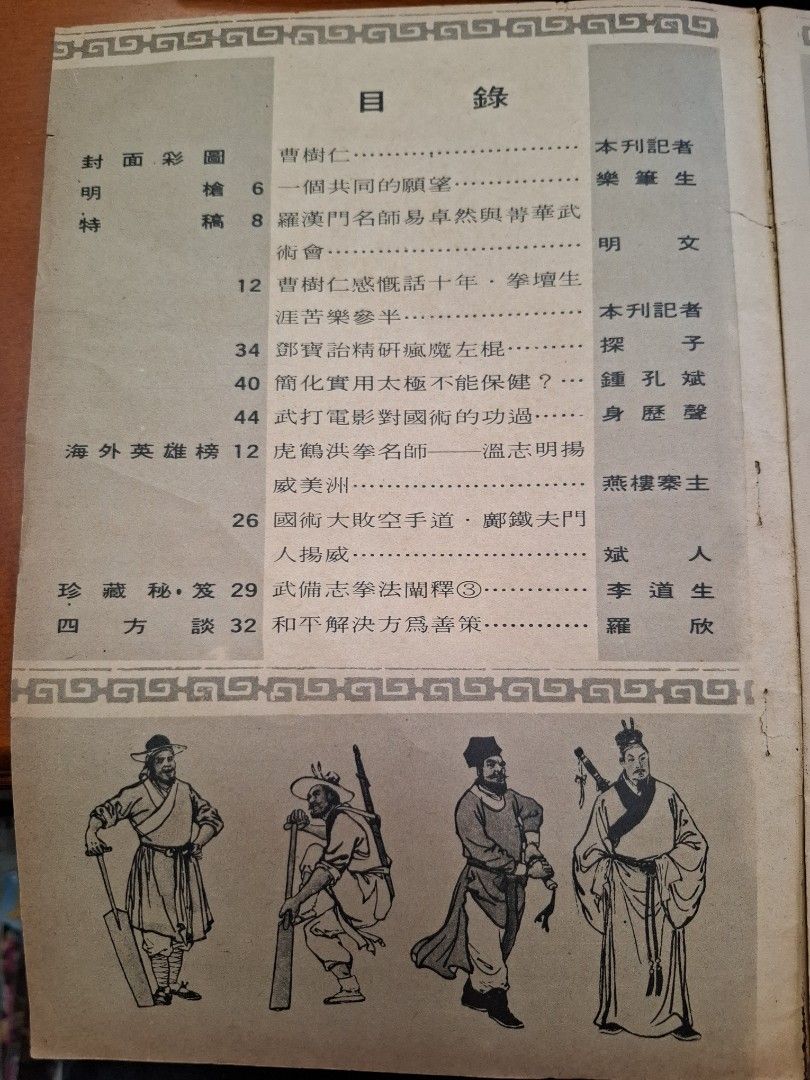 目 錄
封面彩圖 曹樹仁………………………… 本刊記者
明槍 6 一個共同的願望…………… 樂筆生
特稿 8 羅漢門名師易卓然與菁華武
術會………………………… 明文
12 曹樹仁感慨話十年．拳壇生
涯苦樂參半………………… 本刊記者
34 鄧寶詒精研瘋魔左棍……… 探子
40 簡化實用太極不能保健？… 鍾孔斌
44 武打電影對國術的功過…… 身歷聲
海外英雄榜 12 虎鶴洪拳名師——溫志明揚
威美洲……………………… 燕樓寨主
26 國術大敗空手道．鄺鐵夫門
人揚威……………………… 斌人
珍藏秘笈 29 武備志拳法闡釋③………… 李道生
四方談 32 和平解決方爲善策………… 羅欣